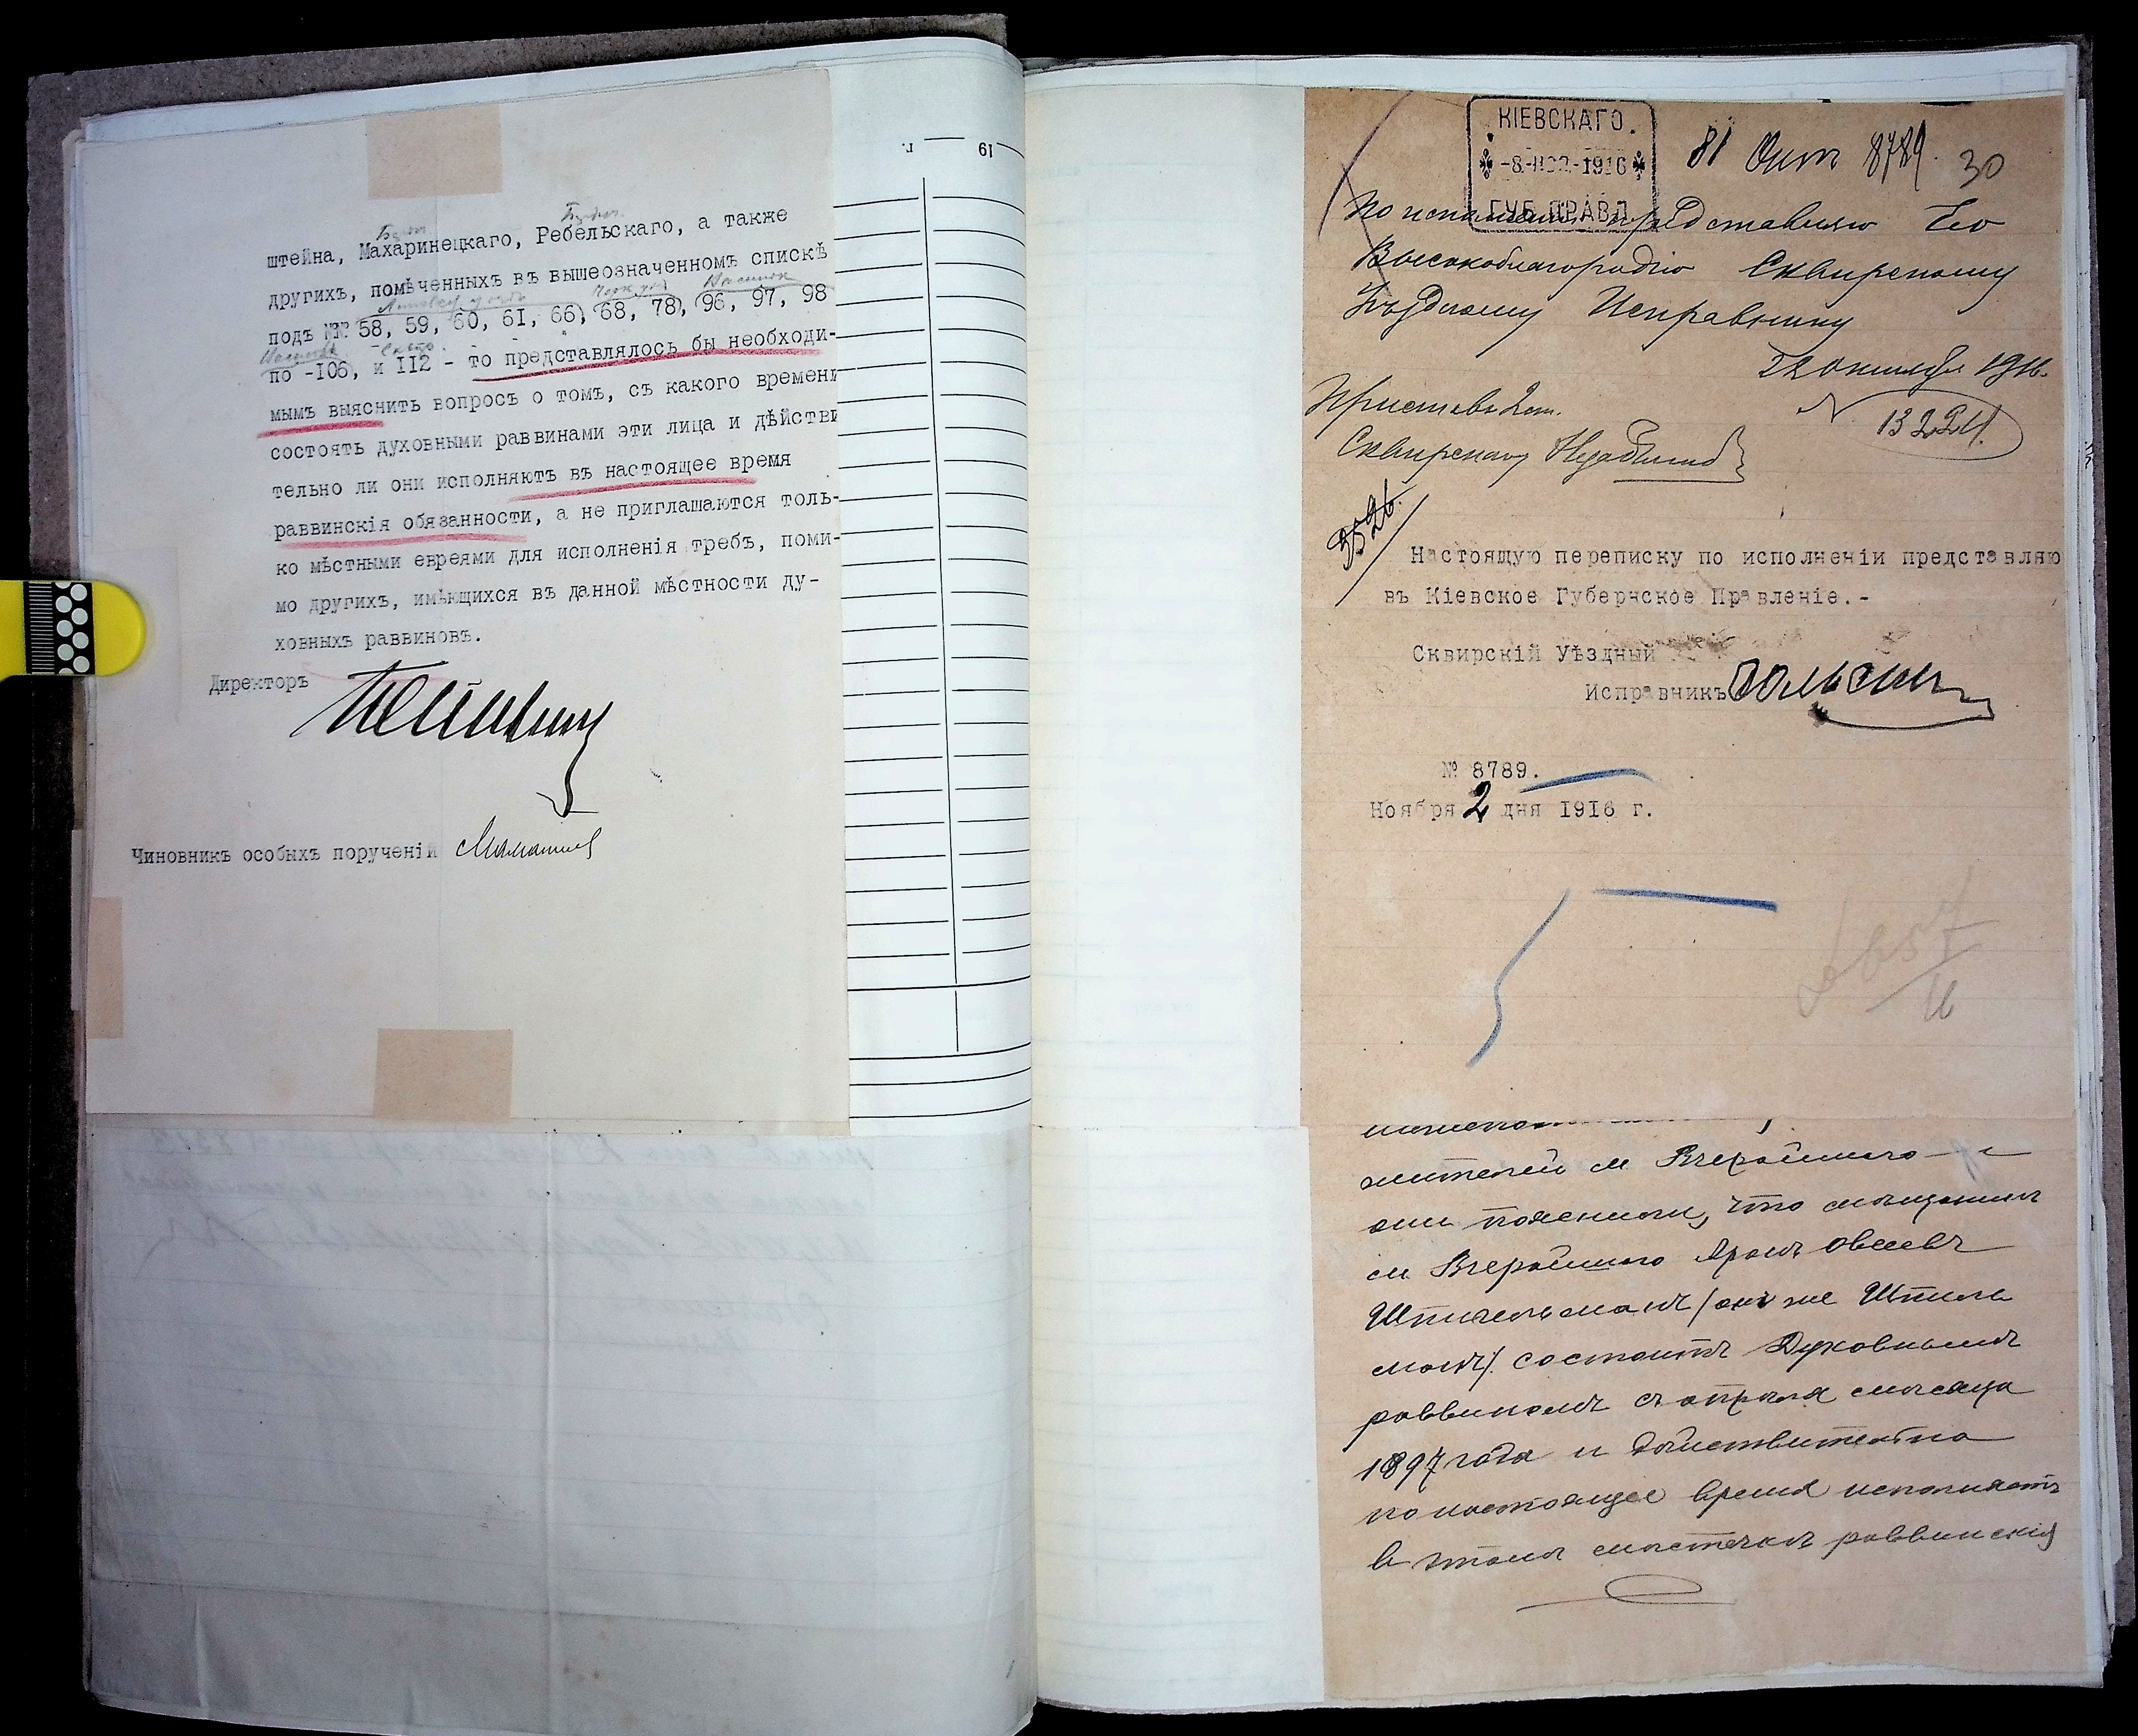 штейна, Махаринецкаго, Ребельскаго, а также
других​ъ, помѣченныхъ въ вышеозначенномъ спискѣ
подъ №№ 58, 59, 60, 61, 66, 68, 78, 96, 97, 98
по -106, и 112 - то представлялось бы необходи-
мымъ выяснить вопросъ о томъ, съ какого времени
состоятъ духовными раввинами эти лица и дѣйстви
тельно ли они исполняютъ въ настоящее время
раввинскія обязанности, а не приглашаются толь-
ко мѣстными евреями для исполненія требъ, поми-
мо другихъ, имѣющихся въ данной мѣстности ду-
ховныхъ раввиновъ.
Директоръ
Чиновникъ особыхъ порученій
19 г.
КІЕВСКАГО.
-8-НОЯ-1916
ГУБ.ПРАВЛ.
81 Опт 8789. 30
По исполненіи представляю Его
Высокоблагородію Сквирскому
Уѣздному Исправнику
22 октября 1916.
Приставъ 2 ст.
13221.
Сквирскаго уѣзда
3526.
Настоящую переписку по исполненіи представляю
въ Кіевское Губернское Правленіе.-
Сквирскій Уѣздный
Исправникъ
№ 8789.
Ноября 2 дня 1916 г.
жителей м Вчерайшаго
они пояснили, что мѣщанинъ
м Вчерайшаго Аронъ Овсеевъ
Шпигельманъ /онъ же Шпиль
манъ/ состоитъ Духовнымъ
раввиномъ съ апрѣля мѣсяца
1897 года и дѣйствительно
по настоящее время исполняетъ
въ этомъ мѣстечкѣ раввинскія